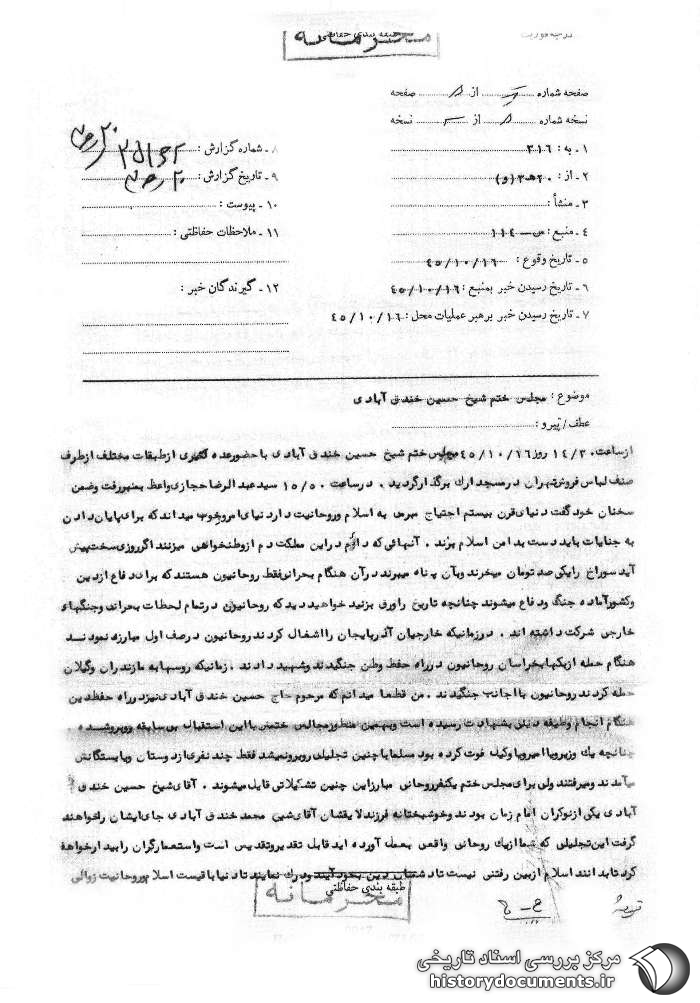 طبقه بندی حفاظتی
محرمانه
صفحه شماره از ۸ صفحه
نسخه شماره ۸ از نسخه
۱ ـ به : ۳۱۶
۲ ـ از : ۲۰ه۳(و)
۳ ـ منشأ :
۴ ـ منبع : س-۱۱۴
۵ ـ تاریخ وقوع : ۴۵/۱۰/۱۶
۶ ـ تاریخ رسیدن خبر بمنبع : ۴۵/۱۰/۱۶
۷ ـ تاریخ رسیدن خبر برهبر عملیات محل : ۴۵/۱۰/۱۶
۸ ـ شماره گزارش :
۹ ـ تاریخ گزارش :
۱۰ ـ پیوست :
۱۱ ـ ملاحظات حفاظتی :
۱۲ ـ گیرندگان خبر :
موضوع : مجلس ختم شیخ حسین خندق آبادی
عطف/پیرو :
ازساعت ۱۴/۳۰ روز ۴۵/۱۰/۱۶ مجلس ختم شیخ حسین خندق آبادی با حضور عده کثیری ازطبقات مختلف ازطرف
صنف لباس فروش تهران درمسجد ارك برگذار گردید . درساعت ۱۵/۵۰ سید عبدالرضا حجازی واعظ بمنبررفت وضمن
سخنان خود گفت دنیای قرن بیستم احتیاج مبرمی به اسلام وروحانیت دارد دنیای امروز خوب میداند که برای پایان دادن
به جنایات باید دست بدامن اسلام بزند . آنهائی که دائم دراین مملکت دم ازوطنخواهی میزنند اگرروزی سخت پیش
آید سوراخ رایکی صد تومان میخرند وبآن پناه میبرند درآن هنگام بحرانی فقط روحانیون هستند که برای دفاع ازدین
وکشورآماده جنگ ودفاع میشوند چنانچه تاریخ راورق بزنید خواهید دید که روحانیون درتمام لحظات بحرانی وجنگهای
خارجی شرکت داشته اند . درزمانیکه خارجیان آذربایجان رااشغال کردند روحانیون درصف اول مبارزه نمودند
هنگام حمله ازبکها بخراسان روحانیون درراه حفظ وطن جنگیدند وشهید دادند . زمانیکه روسها به مازندران وگیلان
حمله کردند روحانیون بااجانب جنگیدند . من قطعا میدانم که مرحوم حاج حسین خندق آبادی نیزدرراه حفظ دین
هنگام انجام وظیفه دینی بشهادت رسیده است وبهمین منظور مجالس ختمش بااین استقبال بی سابقه روبروشده .
چنانچه یك وزیرویاامیرویاوکیل فوت کرده بود مسلما باچنین تجلیلی روبرونمیشد فقط چند نفری ازدوستان ویابستگانش
میآمدند ومیرفتند ولی برای مجلس ختم یکنفرروحانی مبارزاین چنین تشکیلاتی قایل میشوند . آقای شیخ حسین خندق
آبادی یکی ازنوکران امام زمان بودند وخوشبختانه فرزند لایقشان آقای شیخ محمد خندق آبادی جای ایشان راخواهند
گرفت این تجلیلی که شماازیك روحانی واقعی بعمل آورده اید قابل تقدیر وتقدیس است واستعمارگران رابیدارخواهد
کرد تابدانند اسلام ازبین رفتنی نیست تادشمنان دین بخود آیند ودرك نمایند تادنیا باقیست اسلام وروحانیت زوالی
طبقه بندی حفاظتی
محرمانه
مرکز بررسی اسناد تاریخی
historydocuments.ir